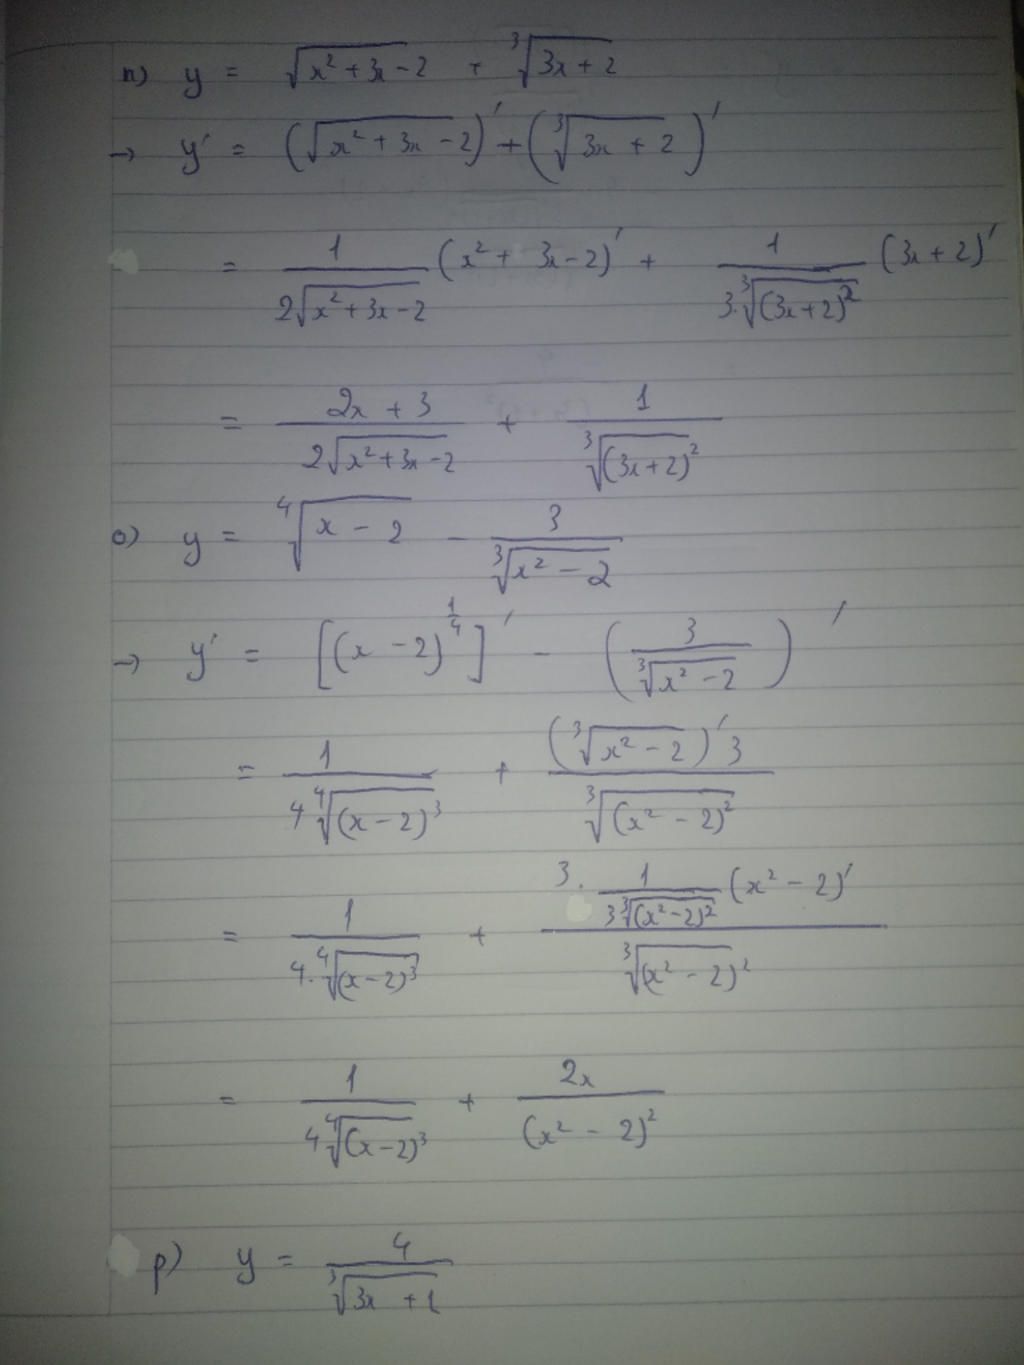 n) y = √(x² + 3x - 2) + ∛(3x + 2)
→ y' = (√(x² + 3x - 2))' + (∛(3x + 2))'
= 1/(2√(x² + 3x - 2)) (x² + 3x - 2)' + 1/(3.∛((3x + 2)²)) (3x + 2)'
= (2x + 3)/(2√(x² + 3x - 2)) + 1/∛((3x + 2)²)
o) y = ∜(x - 2) - 3/∛(x² - 2)
→ y' = [(x - 2)^(1/4)]' - (3/∛(x² - 2))'
= 1/(4∜((x - 2)³)) + (∛(x² - 2))'3/∛((x² - 2)²)
= 1/(4.∜((x - 2)³)) + (3. 1/(3∛((x² - 2)²)) (x² - 2)')/∛((x² - 2)²)
= 1/(4∜((x - 2)³)) + 2x/(x² - 2)²
p) y = 4/∛(3x + 1)